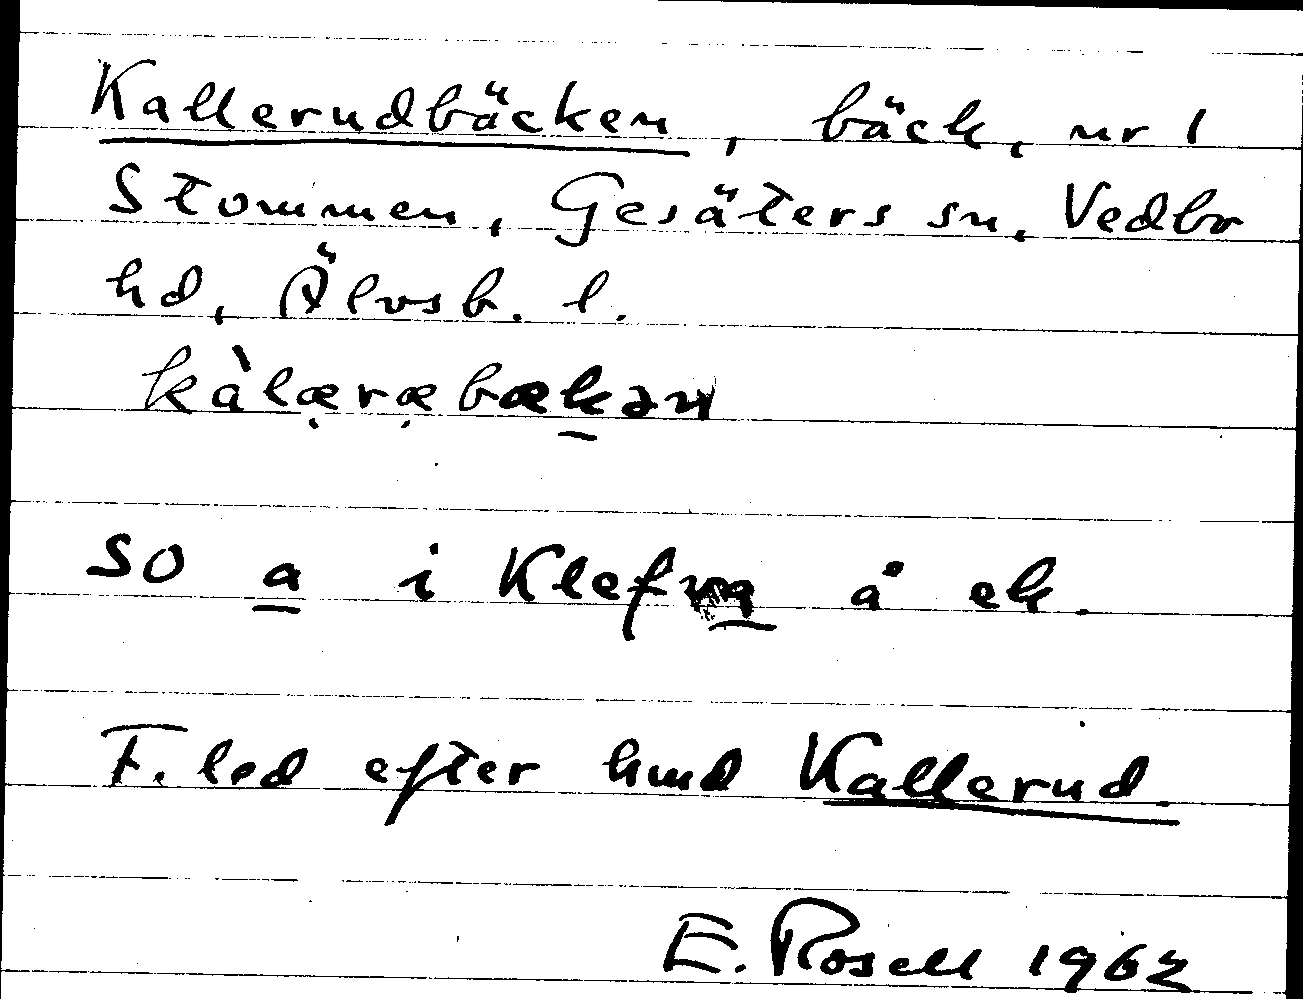 Kallerudbäcken, bäck, nr 1
Stommen, Gesäters sn, Vedbo
hd, Älvsb. l.
kàlæræbækən
SO a i Klefva å ek.
F. led efter hmd Kallerud.
E. Rosell 1962